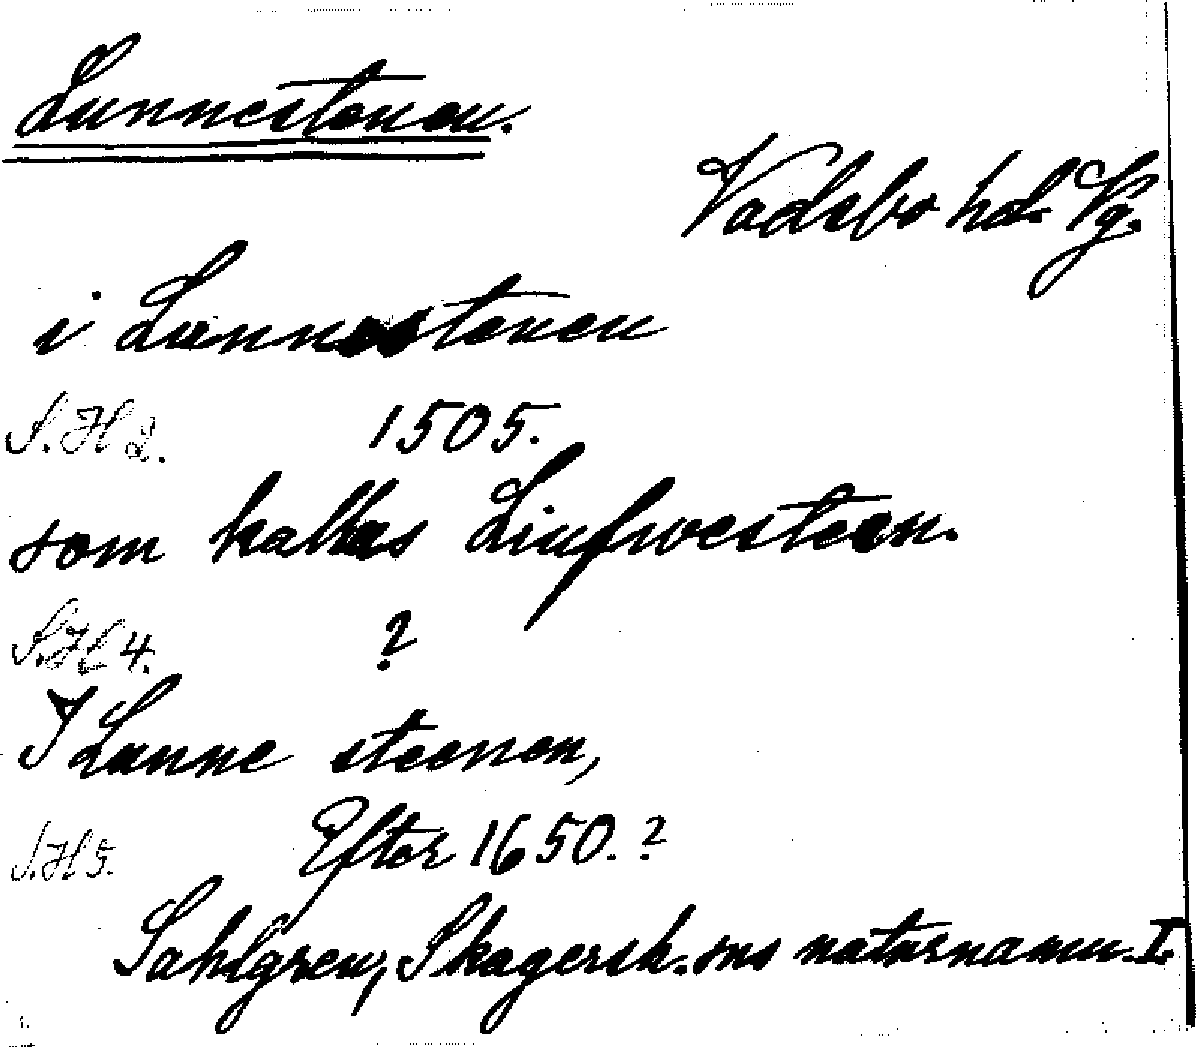 Lunnestenen.
Vadsbo hd. Vg.
i Lunnestenen
S.H 2. 1505.
som kallas Liufwesteen.
S.H 4. ?
I Lunne steenen,
S.H 5. Efter 1650.?
Sahlgren, Skagersh. sns naturnamn. I.